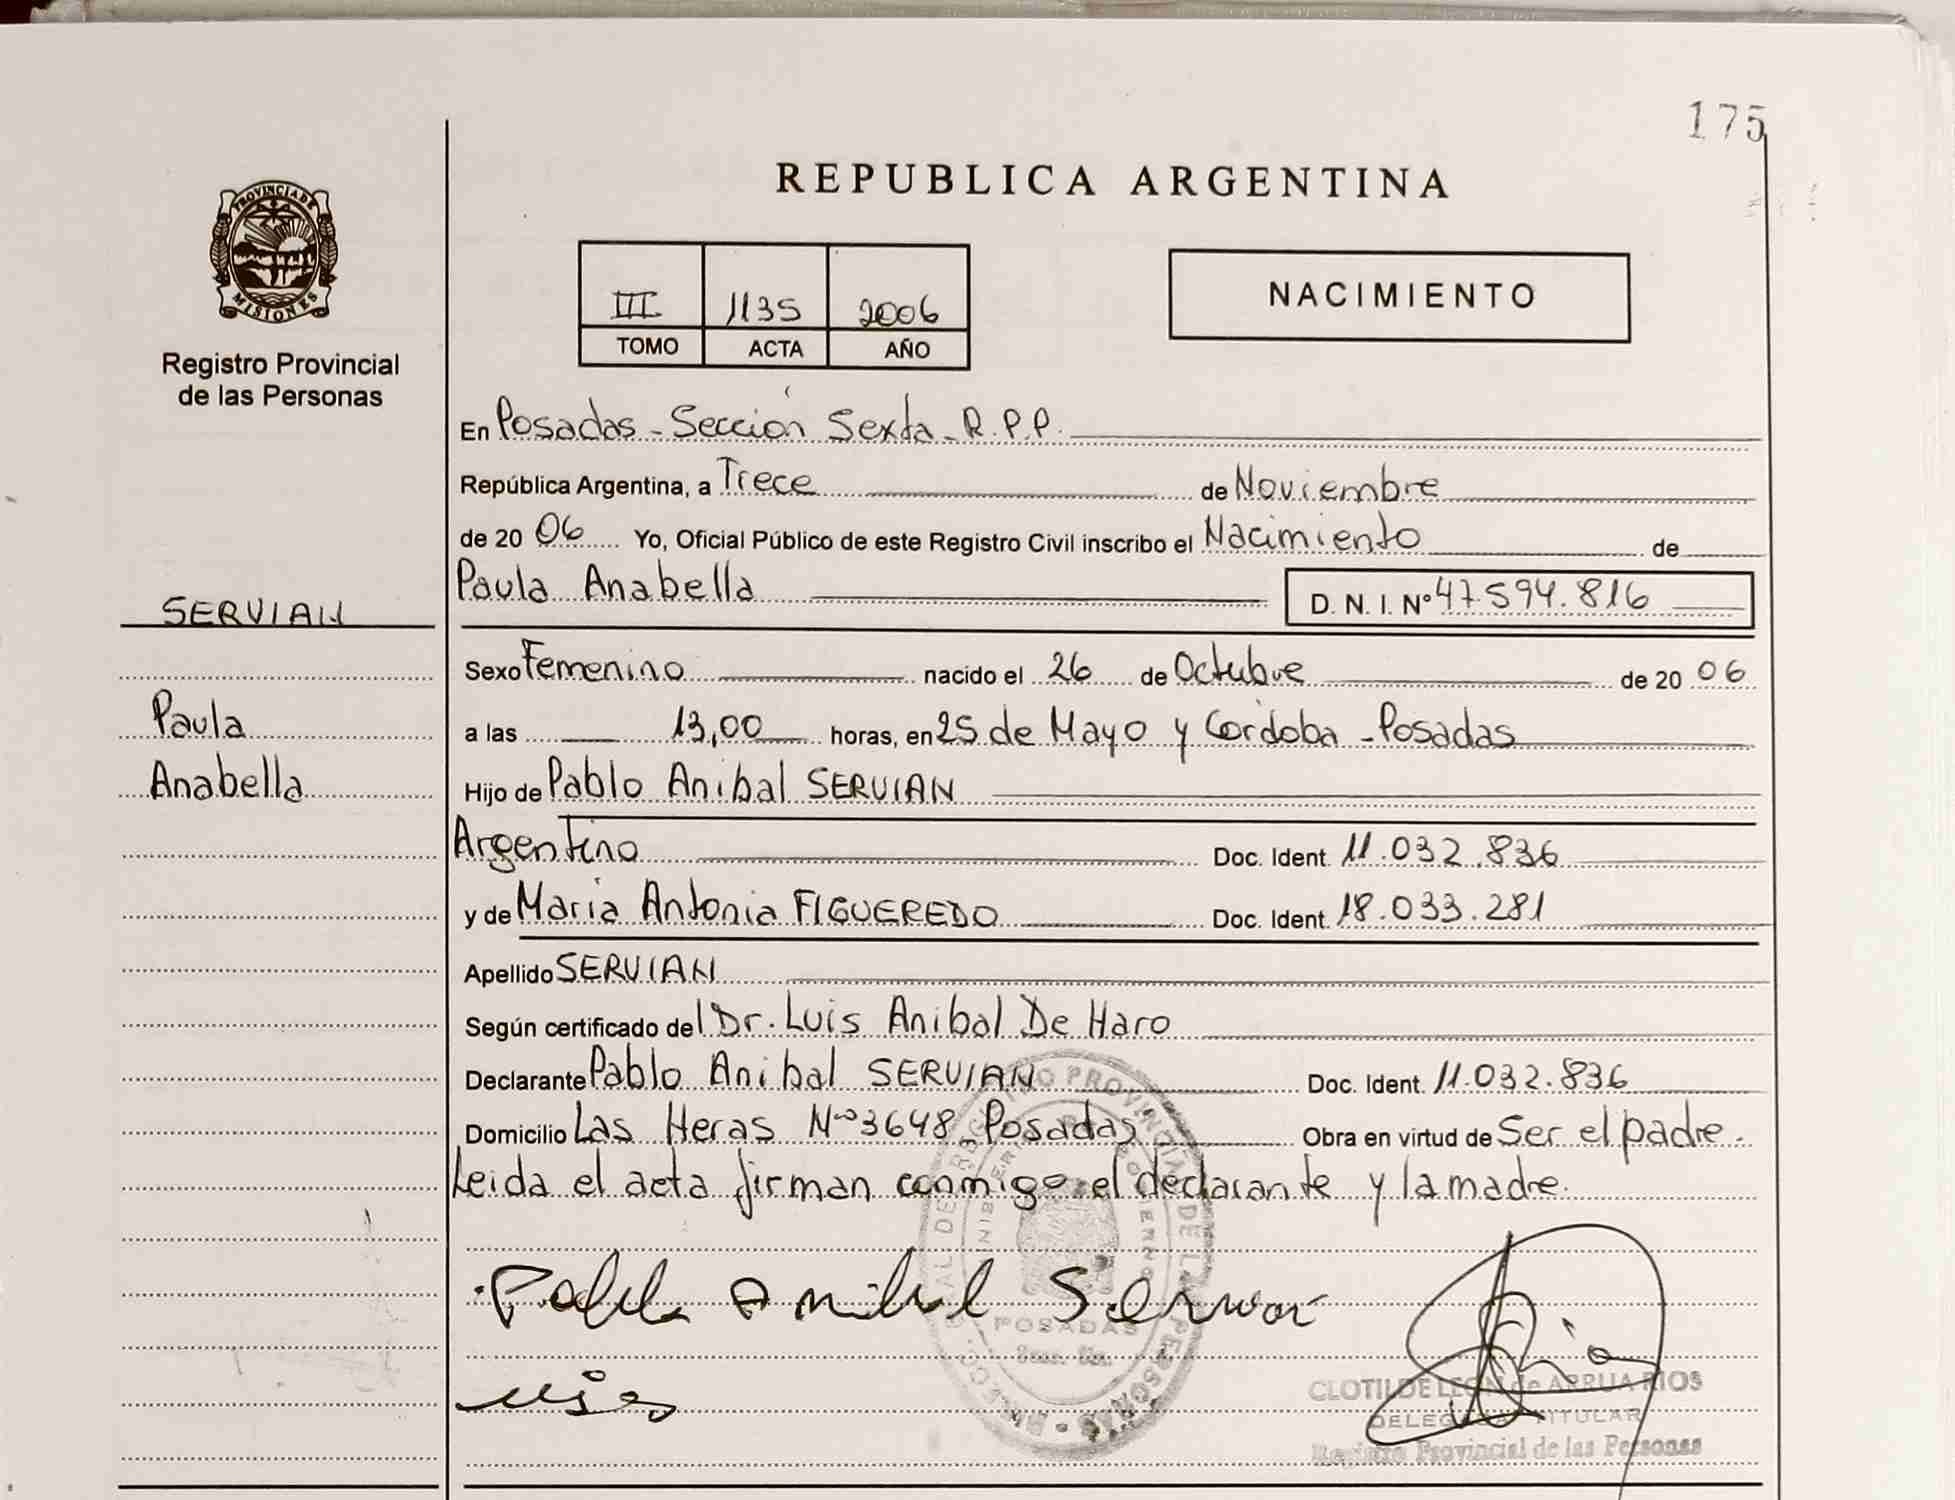 175
REPUBLICA ARGENTINA
PROVINCIA DE
MISIONES
Registro Provincial
de las Personas
III 1135 2006
TOMO ACTA AÑO
NACIMIENTO
En Posadas - Sección Sexta - R.P.P.
República Argentina, a Trece de Noviembre
de 20 06 Yo, Oficial Público de este Registro Civil inscribo el Nacimiento de
Paula Anabella D. N. I. Nº 47.594.816
SERVIAN
Paula
Anabella
Sexo Femenino nacido el 26 de Octubre de 20 06
a las 13,00 horas, en 25 de Mayo y Cordoba - Posadas
Hijo de Pablo Anibal SERVIAN
Argentino Doc. Ident. 11.032.836
y de Maria Antonia FIGUEREDO Doc. Ident. 18.033.281
Apellido SERVIAN
Según certificado del Dr. Luis Anibal De Haro
Declarante Pablo Anibal SERVIAN Doc. Ident. 11.032.836
Domicilio Las Heras Nº 3648 - Posadas Obra en virtud de Ser el padre.
Leida el acta firman conmigo el declarante y la madre.
Pablo Anibal Servian
POSADAS
CLOTILDE LEON de ARRUA RIOS
DELEGADA TITULAR
Registro Provincial de las Personas